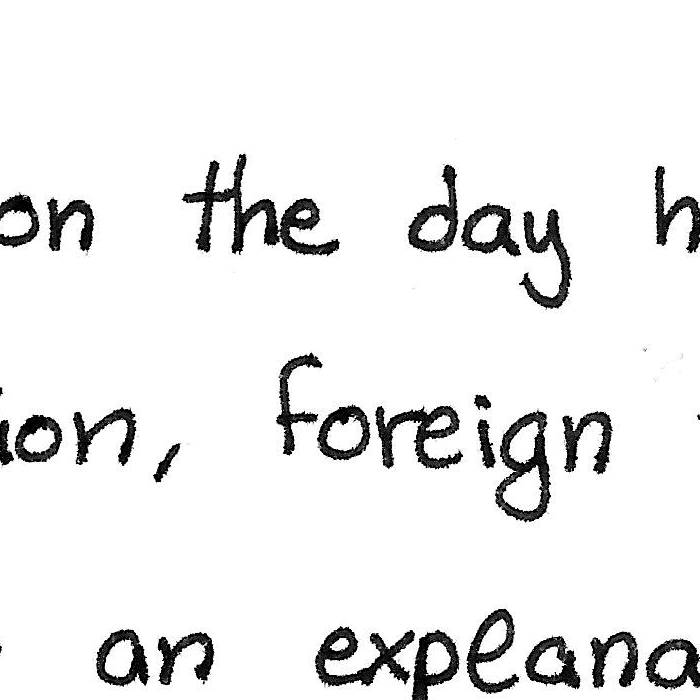 on the day h
ion, foreign
an explana